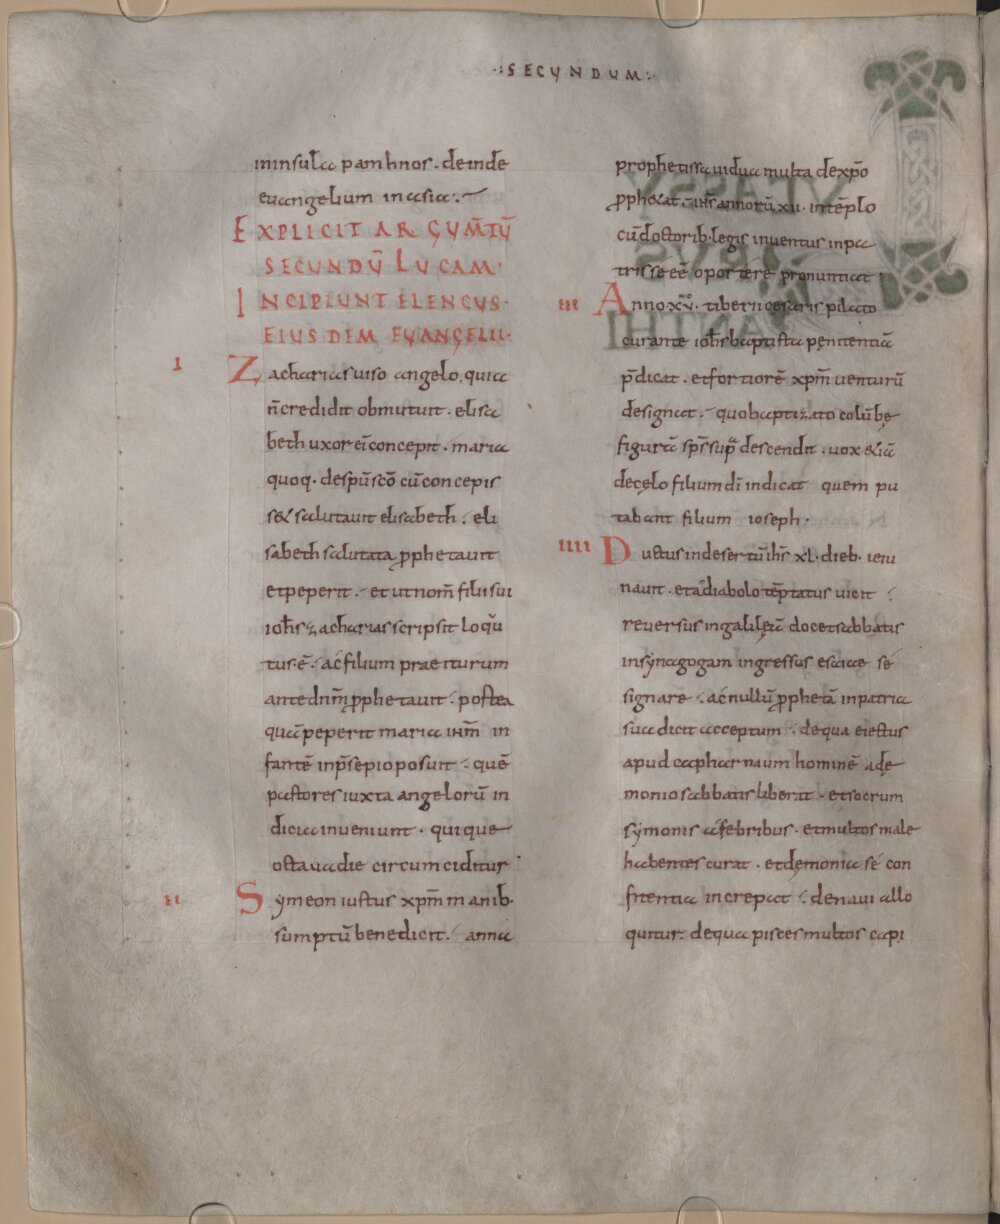 ·:SECUNDUM:·
ininsula pamhnos. deinde
euangelium inasia:~
EXPLICIT ARGUM̄TŪ
SECUNDŪ LUCAM·
INCIPIUNT ELENCUS·
EIUSDEM EUANGELII·
I Zacharias uiso angelo. quia
n̄credidit obmutuit. elisa
beth uxor ei concepit. maria
quoq· despū sc̄o cū concepis
s& salutauit elisabeth. eli
sabeth salutata ꝓphetauit
et peperit. et ut nom̄ filii sui
ioh̄s zacharias scripsit loqū
tus ē. ac filium praeiturum
ante dn̄m ꝓphetauit. postea
quā peperit maria ihm̄ in
fantē inp̄sepio posuit. quē
pastores iuxta angelorū in
dicia inueniunt. quique
octaua die circumciditur
II Symeon iustus xp̄m manib·
sumptū benedicit. anna
prophetissa uidua multa de xp̄o
ꝓph&at. ih̄s annorū xii. intēplo
cū doctorib· legis inuentus inpa
tris se eē oportere pronuntiat
III Anno xv͛. tiberii cesaris pilato
curante ioh̄s baptista penitentiā
p̄dicat. et fortiorē xp̄m uenturū
designat. quo baptizato colūbę
figurā sp̄s sup̄ descendit. uox &iā
decęlo filium dī indicat quem pu
tabant filium ioseph.
IIII Ductus indesertū ih̄s xl. dieb· ieiu
nauit. et a diabolo tēptatus uicit
reuersus ingalileā docet sabbatis
in synagogam ingressus esaiae se
signare. ac nullū ꝓphetā inpatria
sua dicit acceptum. de qua eiectus
apud capharnaum hominē a de
monio sabbatis liberat. et socrum
symonis a febribus. et multos male
habentes curat. et demonia se con
fitentia increpat. de naui allo
quitur. de qua pisces multos capi